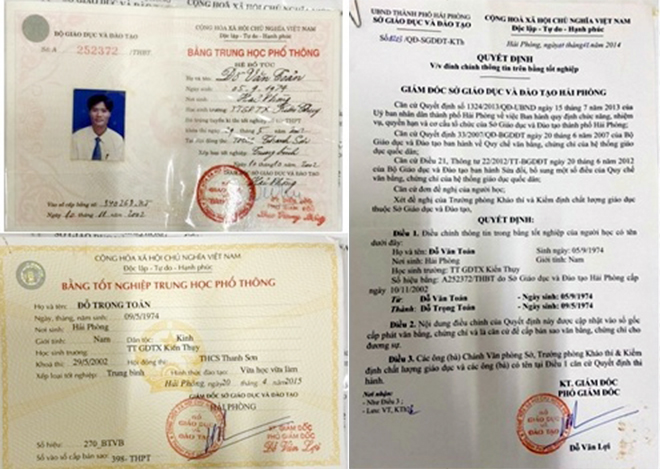 CỘNG HÒA XÃ HỘI CHỦ NGHĨA VIỆT NAM
Độc lập - Tự do - Hạnh phúc
BỘ GIÁO DỤC VÀ ĐÀO TẠO
Số A 252372 /THPT
BẰNG TRUNG HỌC PHỔ THÔNG
HỆ BỔ TÚC
Đỗ Văn Toản
05.9.1974
Hải Phòng
Trung bình
Hải Phòng
CỘNG HÒA XÃ HỘI CHỦ NGHĨA VIỆT NAM
Độc lập - Tự do - Hạnh phúc
BẰNG TỐT NGHIỆP TRUNG HỌC PHỔ THÔNG
Họ và tên: ĐỖ TRỌNG TOÁN
Ngày, tháng, năm sinh: 09/5/1974
Nơi sinh: Hải Phòng
Giới tính: Nam Dân tộc: Kinh
Học sinh trường: TT GDTX Kiến Thụy
Khoá thi: 29/5/2002 Hội đồng thi: THCS Thanh Sơn
Xếp loại tốt nghiệp: Trung bình Hình thức đào tạo: Vừa học vừa làm
Hải Phòng, ngày 20 tháng 4 năm 2015
HẢI PHÒNG
KT. GIÁM ĐỐC
PHÓ GIÁM ĐỐC
Đỗ Văn Lợi
SỞ GIÁO DỤC VÀ ĐÀO TẠO
Số hiệu: 270_BTVB
Số vào sổ cấp bản sao: 398- THPT
UBND THÀNH PHỐ HẢI PHÒNG
SỞ GIÁO DỤC VÀ ĐÀO TẠO
CỘNG HÒA XÃ HỘI CHỦ NGHĨA VIỆT NAM
Độc lập - Tự do - Hạnh phúc
/QĐ-SGDĐT-KTh
Hải Phòng, ngày tháng năm 2014
QUYẾT ĐỊNH
V/v đính chính thông tin trên bằng tốt nghiệp
GIÁM ĐỐC SỞ GIÁO DỤC VÀ ĐÀO TẠO HẢI PHÒNG
Căn cứ Quyết định số 1324/2013/QĐ-UBND ngày 15 tháng 7 năm 2013 của
Uỷ ban nhân dân thành phố Hải Phòng về việc Ban hành quy định chức năng, nhiệm
vụ, quyền hạn và cơ cấu tổ chức của Sở Giáo dục và Đào tạo thành phố Hải Phòng;
Căn cứ Quyết định số 33/2007/QĐ-BGDĐT ngày 20 tháng 6 năm 2007 của Bộ
Giáo dục và Đào tạo ban hành Quy chế văn bằng, chứng chỉ của hệ thống giáo dục
quốc dân;
Căn cứ Điều 21, Thông tư 22/2012/TT-BGDĐT ngày 20 tháng 6 năm 2012
của Bộ Giáo dục và Đào tạo ban hành Sửa đổi, bổ sung một số điều của Quy chế
văn bằng, chứng chỉ của hệ thống giáo dục quốc dân;
Căn cứ đơn đề nghị của người học;
Xét đề nghị của Trưởng phòng Khảo thí và Kiểm định chất lượng giáo dục
thuộc Sở Giáo dục và Đào tạo,
QUYẾT ĐỊNH:
Điều 1. Đính chính thông tin trong bằng tốt nghiệp của người học có tên
dưới đây:
Họ và tên: Đỗ Văn Toản Sinh ngày: 05/9/1974
Nơi sinh: Hải Phòng Giới tính: Nam
Học sinh trường: TT GDTX Kiến Thụy
Số hiệu bằng: A252372/THBT do Sở Giáo dục và Đào tạo Hải Phòng cấp
ngày 10/11/2002
Từ: Đỗ Văn Toản - Ngày sinh: 05/9/1974
Thành: Đỗ Trọng Toán - Ngày sinh: 09/5/1974
Điều 2. Nội dung điều chỉnh của Quyết định này được cập nhật vào sổ gốc
cấp phát văn bằng, chứng chỉ và là căn cứ để cấp bản sao văn bằng, chứng chỉ cho
đương sự.
Điều 3. Các ông (bà) Chánh Văn phòng Sở, Trưởng phòng Khảo thí & Kiểm
định chất lượng giáo dục và các ông (bà) có tên tại Điều 1 căn cứ Quyết định thi
hành.
Nơi nhận:
- Như Điều 3;
- Lưu: VT, KTKĐ
KT. GIÁM ĐỐC
PHÓ GIÁM ĐỐC
SỞ GIÁO DỤC VÀ ĐÀO TẠO
Đỗ Văn Lợi